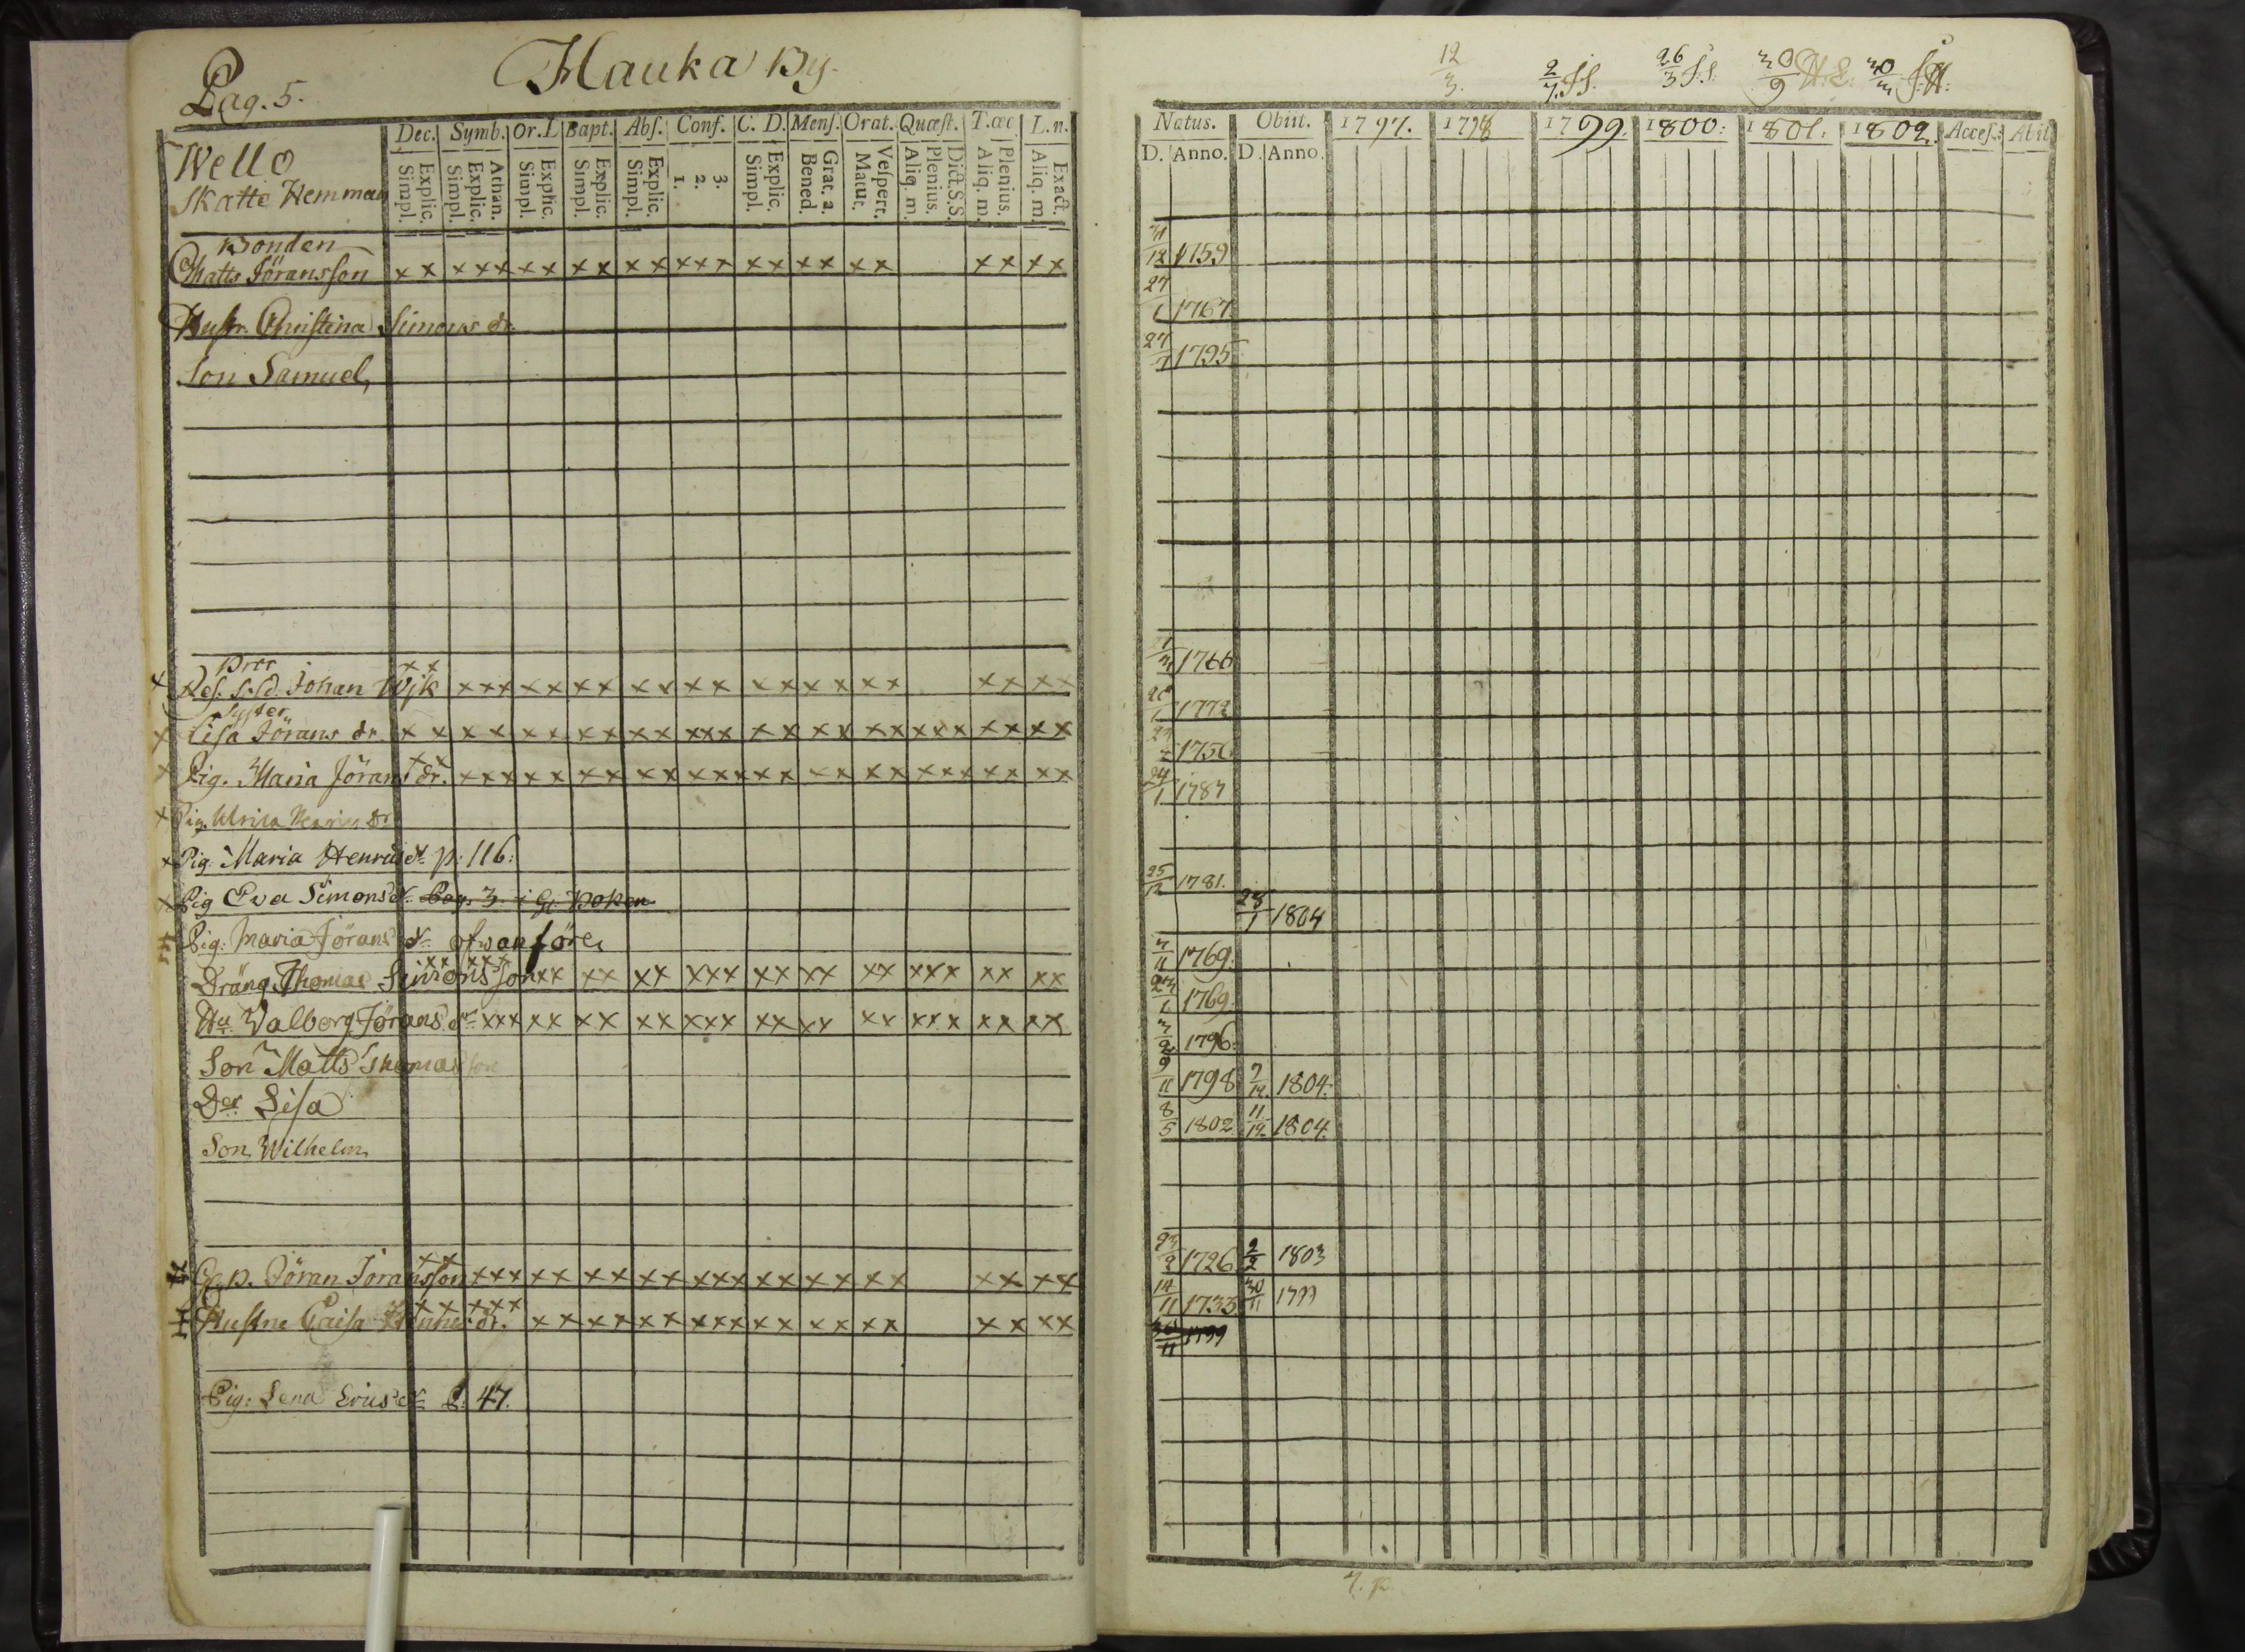 Pag. 5.
Hauka By.
Wello
Skatte Hemman
Dec. Symb. Or. L Bapt. Abs. Conf. C. D. Mens. Orat. Quæst. T. œc L. n.
Explic. Simpl. Athan. Explic. Simpl. Explic. Simpl. Explic. Simpl. Explic. Simpl. 3. 2. 1. Explic. Simpl. Grat. a. Bened. Vespert. Matut. Dict. S.S. Plenius. Aliq. m. Plenius. Aliq. m. Exact. Aliq. m.
Bonden
Matts Jöransson x x x x x x x x x x x x x x x x x x x x x x x x
Hustr. Christina Simons dr.
Son Samuel,
Bror
x Res. Sold. Johan Wjk x x x x x x x x x x x x x x x x x x x x x x x
Syster
x Lisa Jörans dr. x x x x x x x x x x x x x x x x x x x x x x x x x x
x Pig. Maria Jörans dr. x x x x x x x x x x x x x x x x x x x x x x x x x x x
x Pig. Ulrica dr
x Pig. Maria Henrics dr. p. 116.
x Pig Eva Simons dr. Pag. 3. i Gl. Boken
Pig: Maria Jörans dr. ofwanföre
Dräng Thomas Simonsson xx xx xx xxx xx xx xx xxx xx xx
Hu Valborg Jörans dr xxx xx xx xx xxx xx xx xx xxx xx xx
Son Matts Thomasson
Der Lisa
Son Wilhelm
Jöran Jöransson x x x x x x x x x x x x x x x x x x x x x x x x
Hustru Caisa dr. x x x x x x x x x x x x x x x x x x x x x x x x
Pig: Lena Erics dr P. 47.
12/3. 2/7. J.S. 26/3 J.S. 30/9 30/3
Natus. Obiit. 1797. 1798 1799. 1800. 1801. 1802. Acces. Abiit
D. Anno. D. Anno.
31/12 1759
27/1 1767
27/7 1795
1/3 1766
1772
1750
24/1 1787
25/12 1781.
28/1 1804
7/11 1769.
1769.
3/2 1796.
9/11 1798 7/12. 1804.
8/5 1802 11/12 1804.
23/2 1726 2/2 1803
14/11 1733 30/11 1799
30/11 1799